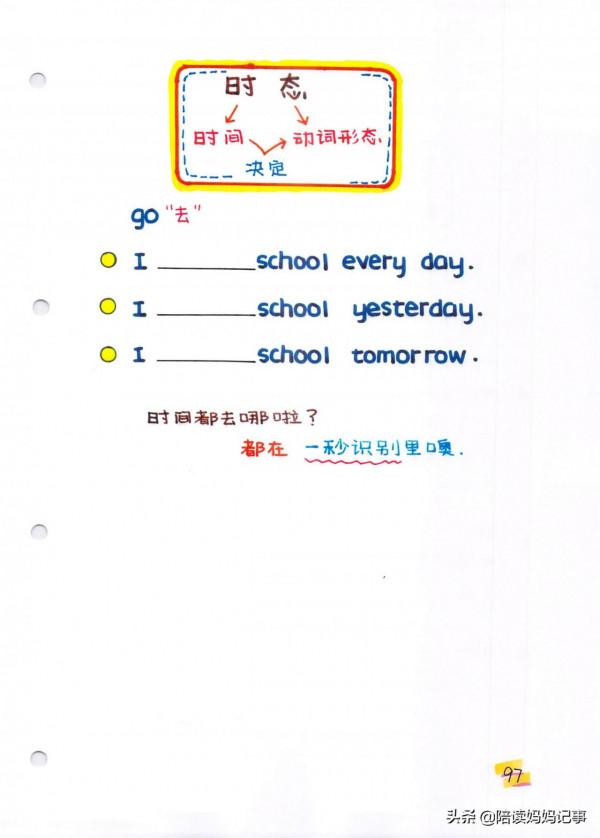 时 态
时间 动词形态
决定
go "去"
I ________ school every day.
I ________ school yesterday.
I ________ school tomorrow.
时间都去哪啦?
都在 一秒识别里噢.
97
头条 @陪读妈妈记事